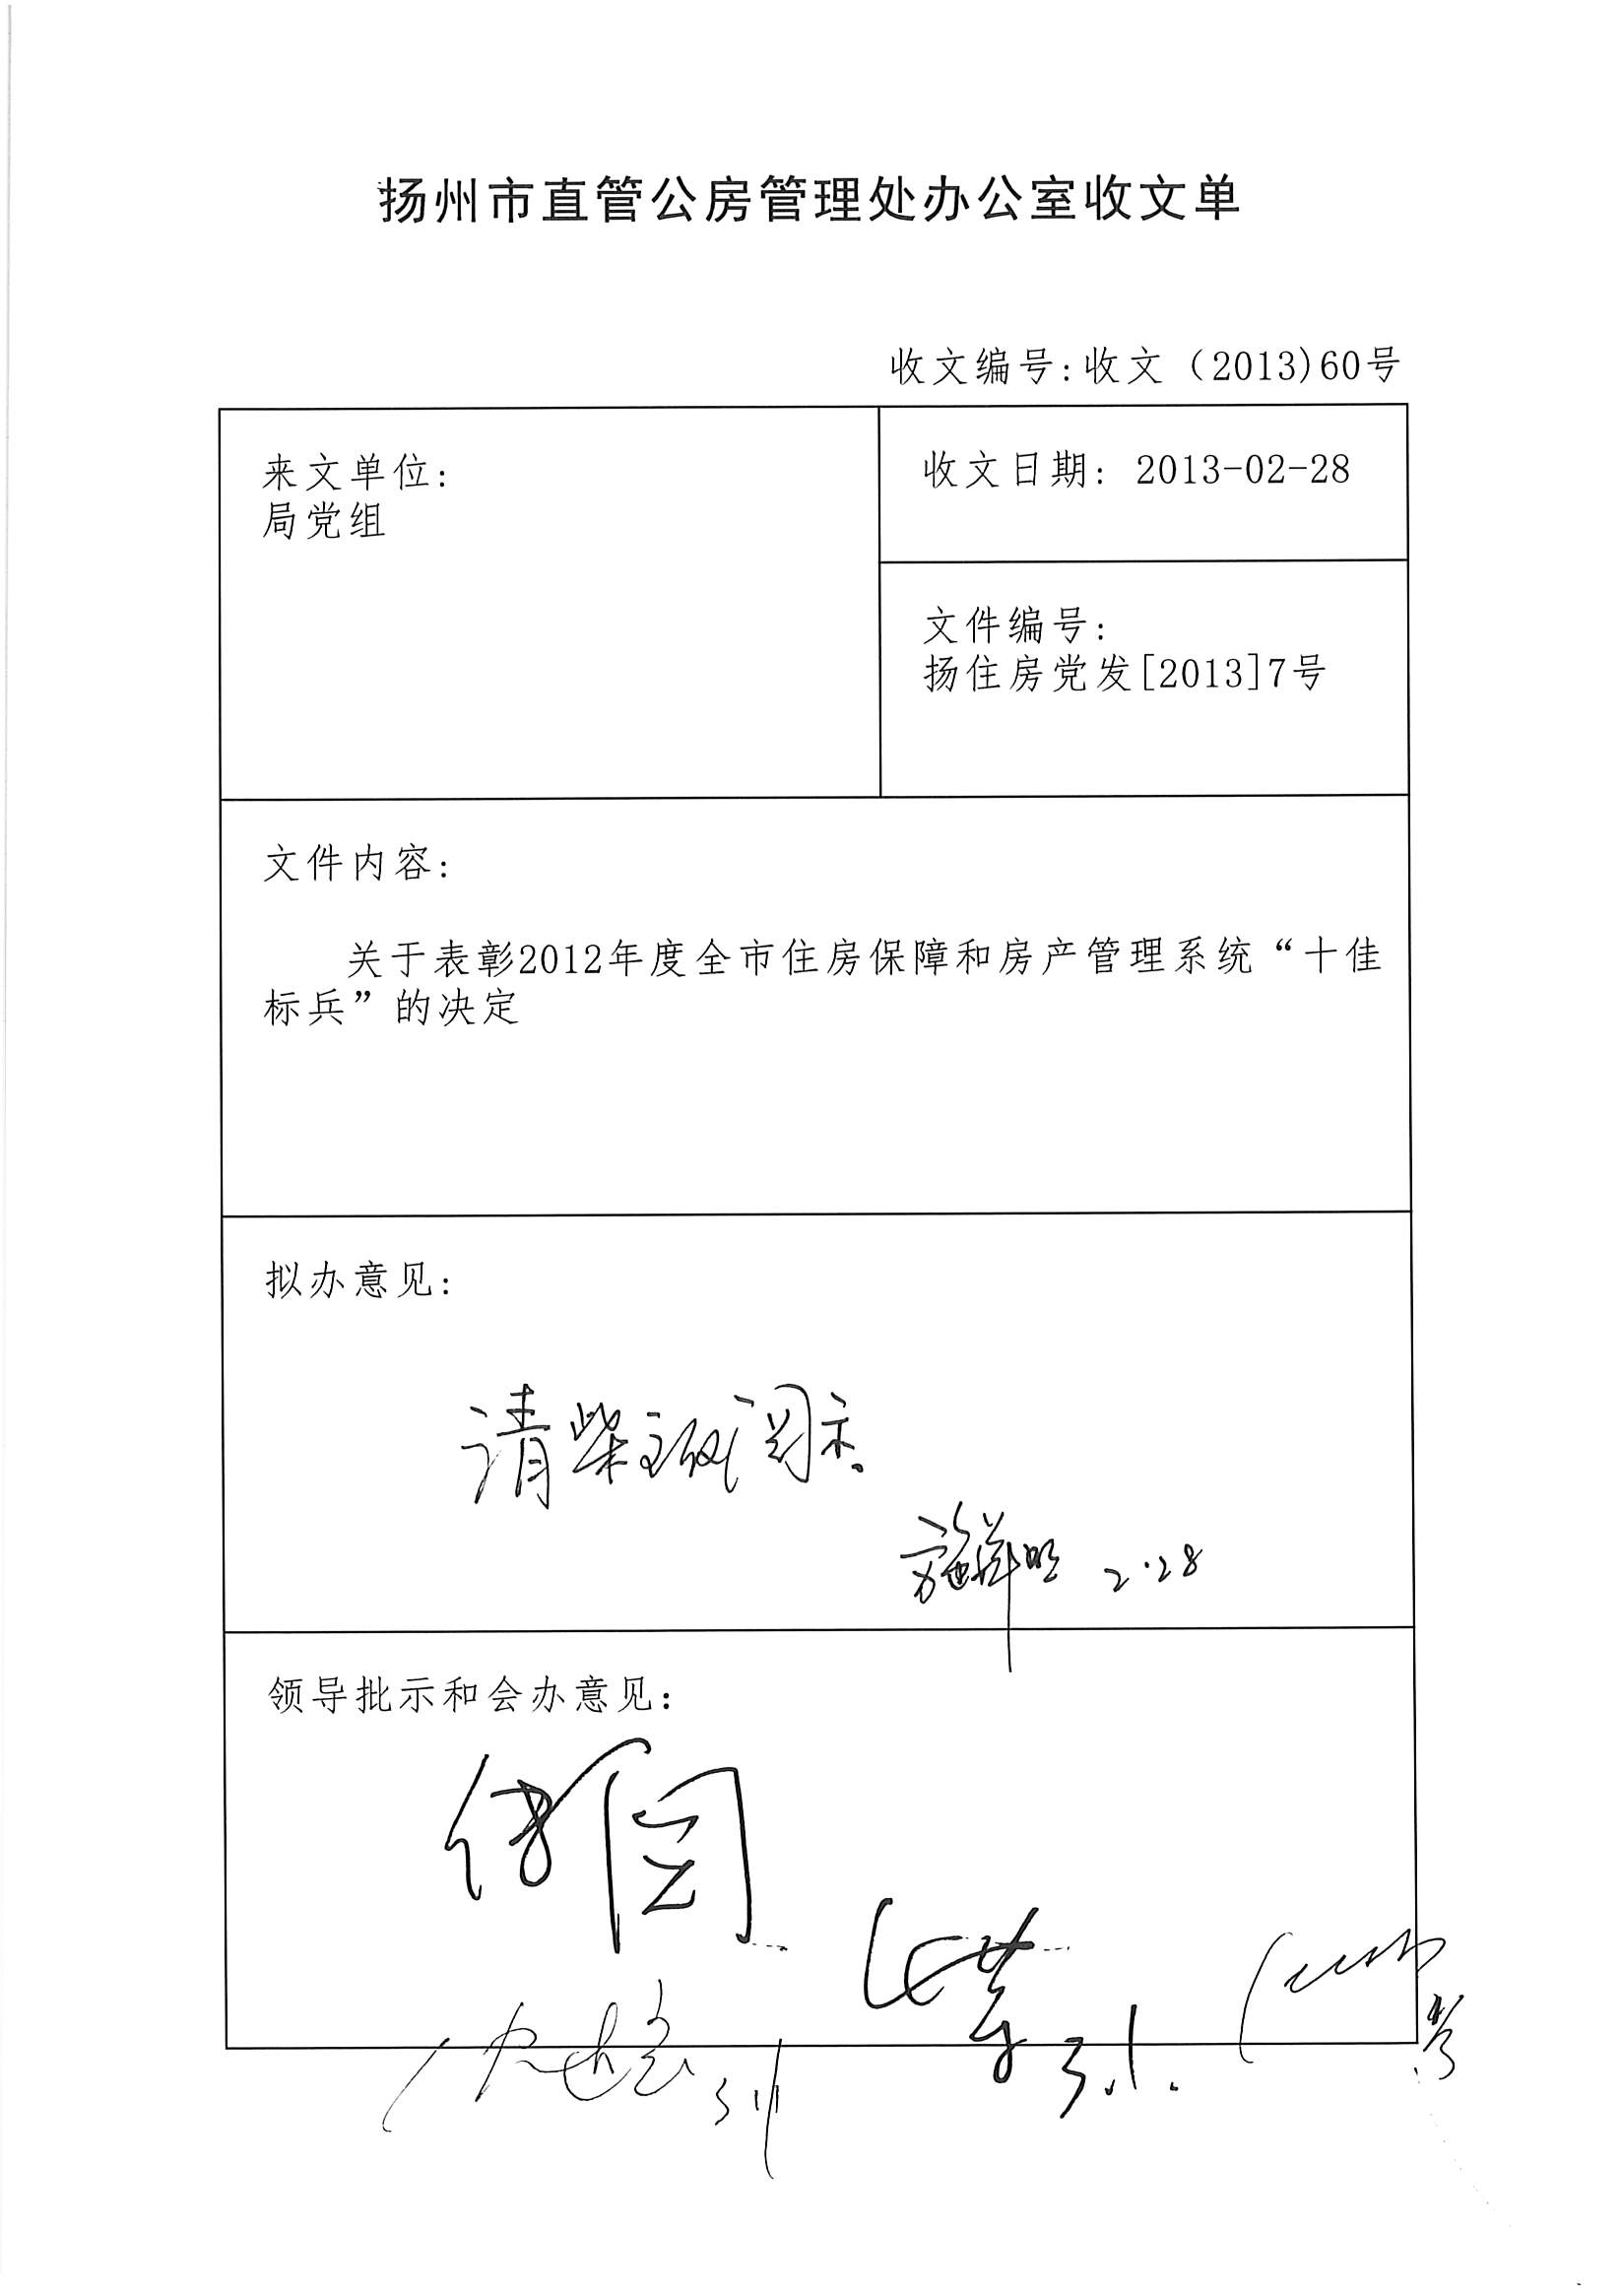 扬州市直管公房管理处办公室收文单
收文编号:收文（2013)60号
来文单位:
局党组
收文日期: 2013-02-28
文件编号:
扬住房党发[2013]7号
文件内容:
关于表彰2012年度全市住房保障和房产管理系统“十佳
标兵”的决定
拟办意见:
请柴主任阅示。
2.28
领导批示和会办意见:
传阅
3.1.